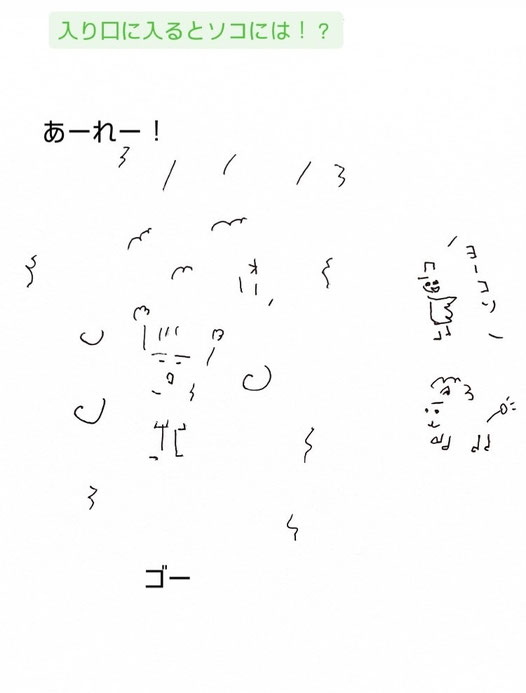 入り口に入るとソコには！？
あーれー！
ヨーコソ
ゴー